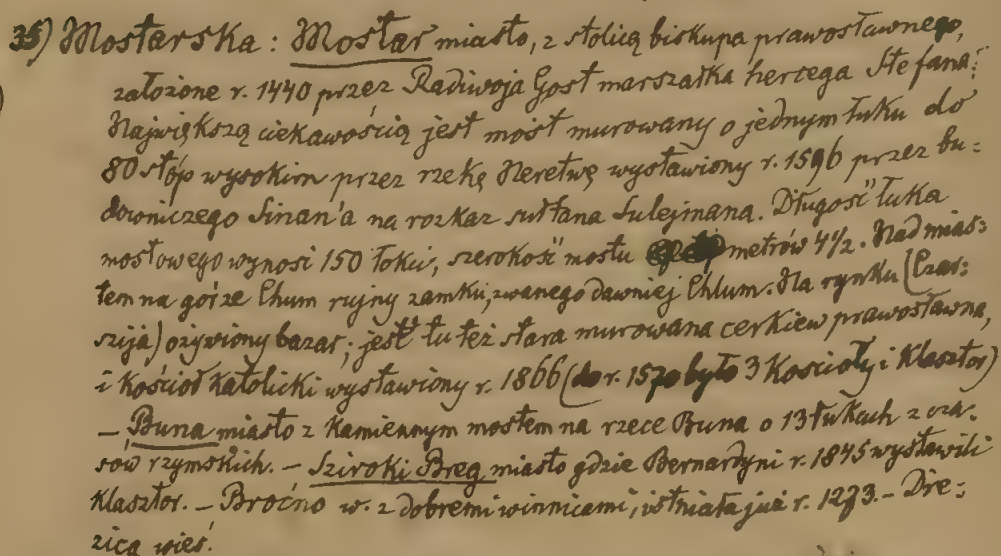 35) Mostarska : Mostar miasto, z stolicą biskupa prawosławnego,
założone r. 1440 przez Radiwoja Gost marszałka hercega Stefana.
Największą ciekawością jest most murowany o jednym łuku do
80 stóp wysokim przez rzekę Neretwę wystawiony r. 1596 przez bu=
downiczego Sinan'a na rozkaz sułtana Sulejmana. Długość łuka
mostowego wynosi 150 łoku, szerokość mostu metrów 4 1/2. Nad mias=
tem na górze Chum rujny zamku, zwanego dawniej Chlum. Na rynku (Czar=
szija) ożywiony bazar, jest tu też stara murowana cerkiew prawosławna,
i kościoł katolicki wystawiony r. 1866 (do r. 1570 było 3 kościoły i klasztor)
— Buna miasto z kamiennym mostem na rzece Buna o 13 łukach z cza=
sów rzymskich. — Sziroki Breg miasto gdzie Bernardyni r. 1845 wystawili
klasztor. — Broćno w. z dobremi winnicami, istniała już r. 1273. — Dre=
zica wieś.